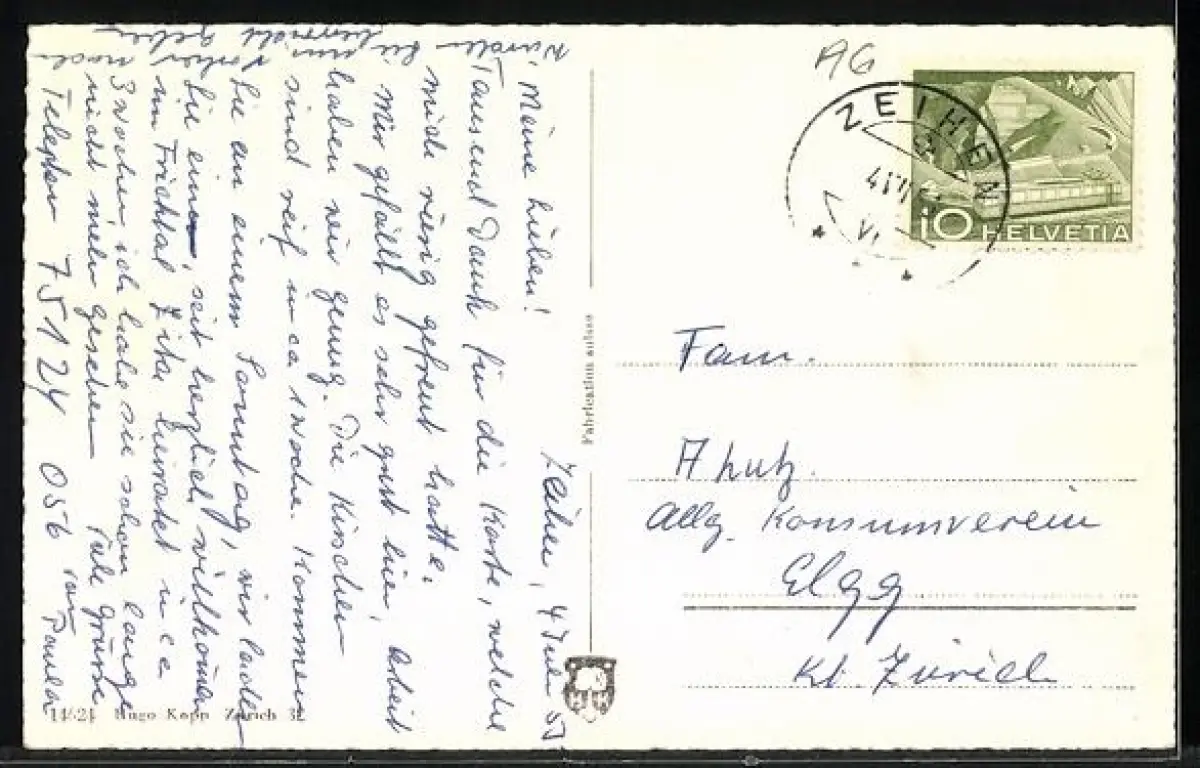 Zeihen, 4 Juli 57
Meine Lieben!
Tausend Dank für die Karte, welche
mich riesig gefreut hatte.
Mir gefällt es sehr gut hier, Arbeit
haben wir genug. Die Kirschen
sind reif in ca 1 Woche. Kommen
Sie an einem Sonntag, wir laden
Sie ein, seit herzlich willkommen
im Fricktal Zita heiratet in ca
3 Wochen, ich habe sie schon lange
nicht mehr gesehen
Telephon 75124 056 von Paula
Würden Sie mir
vorher noch
Bericht geben
AG
ZEIHEN
10 HELVETIA
Fam.
Allg. Konsumverein
Elgg
Kt. Zürich
Fabrication suisse
14624 Hugo Kopp Zürich 32